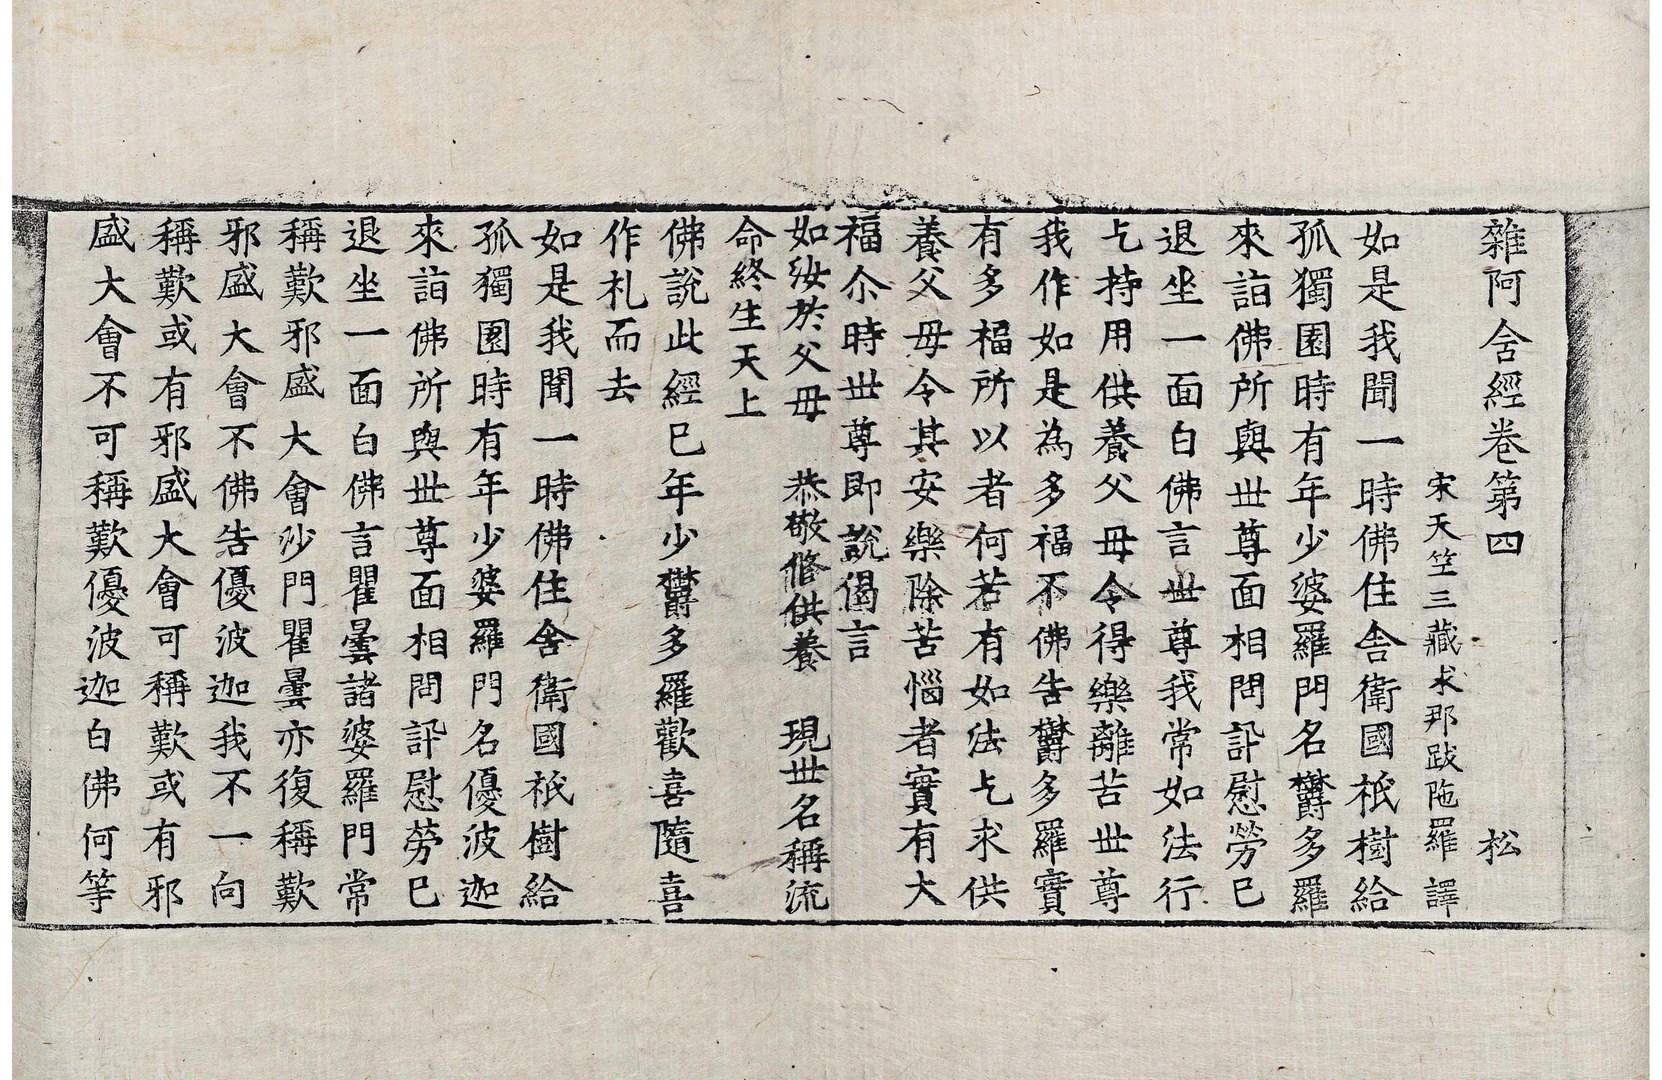 雜阿含經卷第四 松
宋天竺三藏求那跋陁羅譯
如是我聞一時佛住舍衛國祇樹給
孤獨園時有年少婆羅門名欝多羅
來詣佛所與世尊面相問訊慰勞已
退坐一面白佛言世尊我常如法行
乞持用供養父母令得樂離苦世尊
我作如是為多福不佛告欝多羅實
有多福所以者何若有如法乞求供
養父母令其安樂除苦惱者實有大
福尒時世尊即說偈言
如汝於父母 恭敬修供養 現世名稱流
命終生天上
佛說此經已年少欝多羅歡喜隨喜
作札而去
如是我聞一時佛住舍衛國祇樹給
孤獨園時有年少婆羅門名優波迦
來詣佛所與世尊面相問訊慰勞已
退坐一面白佛言瞿曇諸婆羅門常
稱歎邪盛大會沙門瞿曇亦復稱歎
邪盛大會不佛告優波迦我不一向
稱歎或有邪盛大會可稱歎或有邪
盛大會不可稱歎優波迦白佛何等